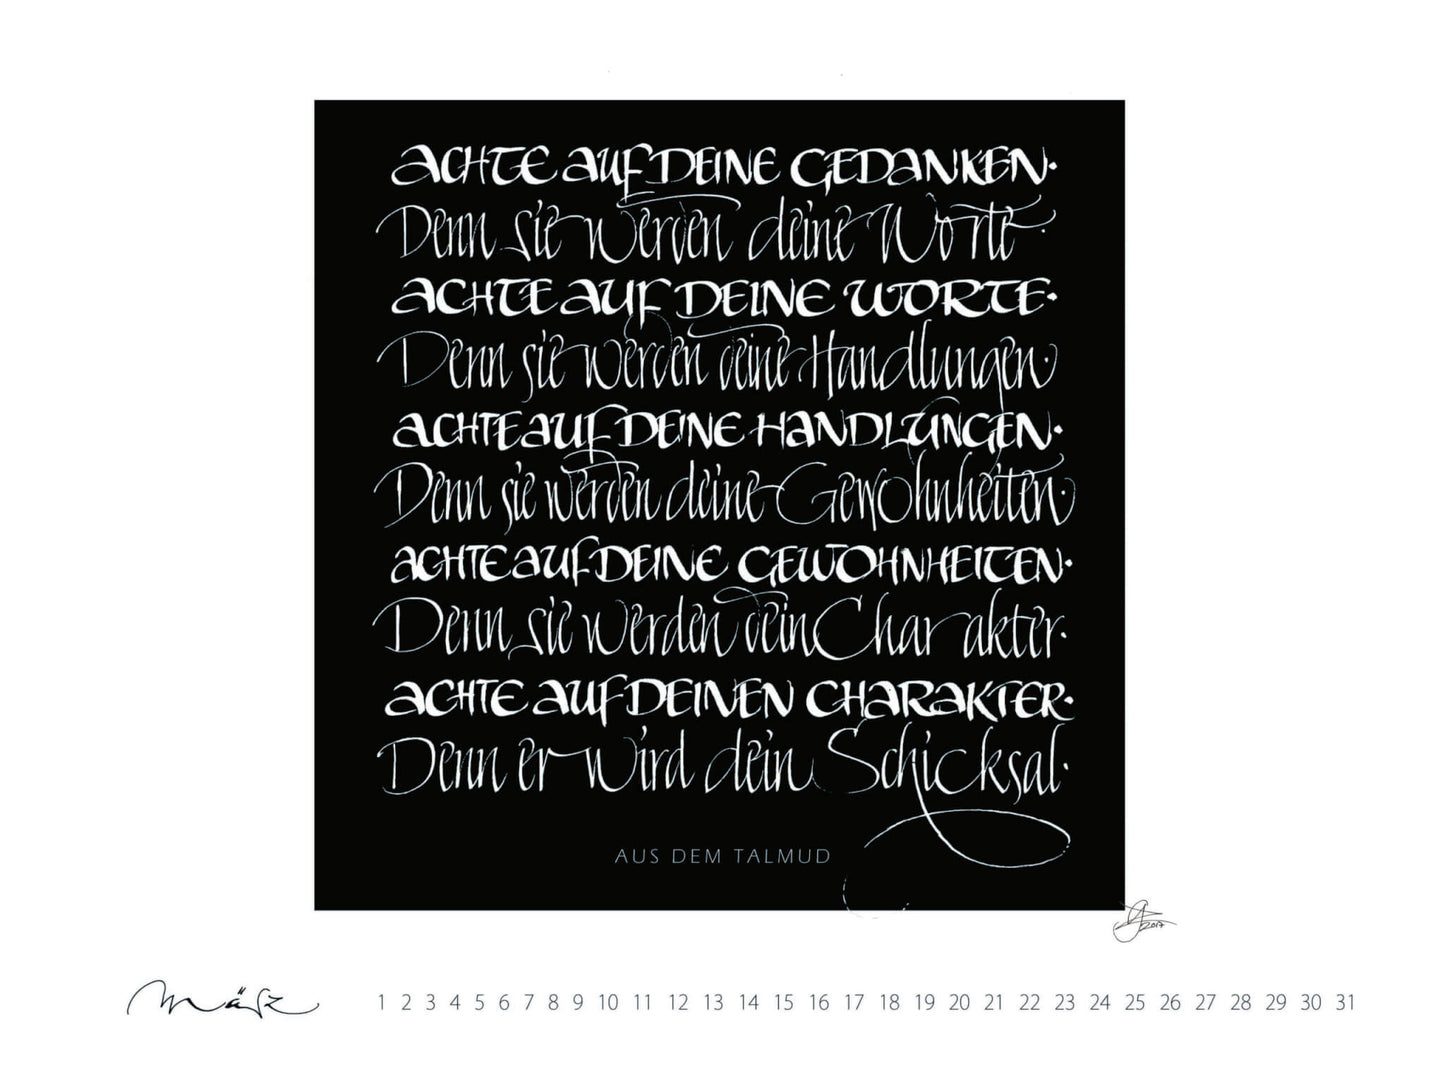 ACHTE AUF DEINE GEDANKEN·
Denn sie werden deine Worte·
ACHTE AUF DEINE WORTE·
Denn sie werden deine Handlungen·
ACHTE AUF DEINE HANDLUNGEN·
Denn sie werden deine Gewohnheiten·
ACHTE AUF DEINE GEWOHNHEITEN·
Denn sie werden dein Charakter·
ACHTE AUF DEINEN CHARAKTER·
Denn er wird dein Schicksal·
AUS DEM TALMUD
2017
März 1 2 3 4 5 6 7 8 9 10 11 12 13 14 15 16 17 18 19 20 21 22 23 24 25 26 27 28 29 30 31